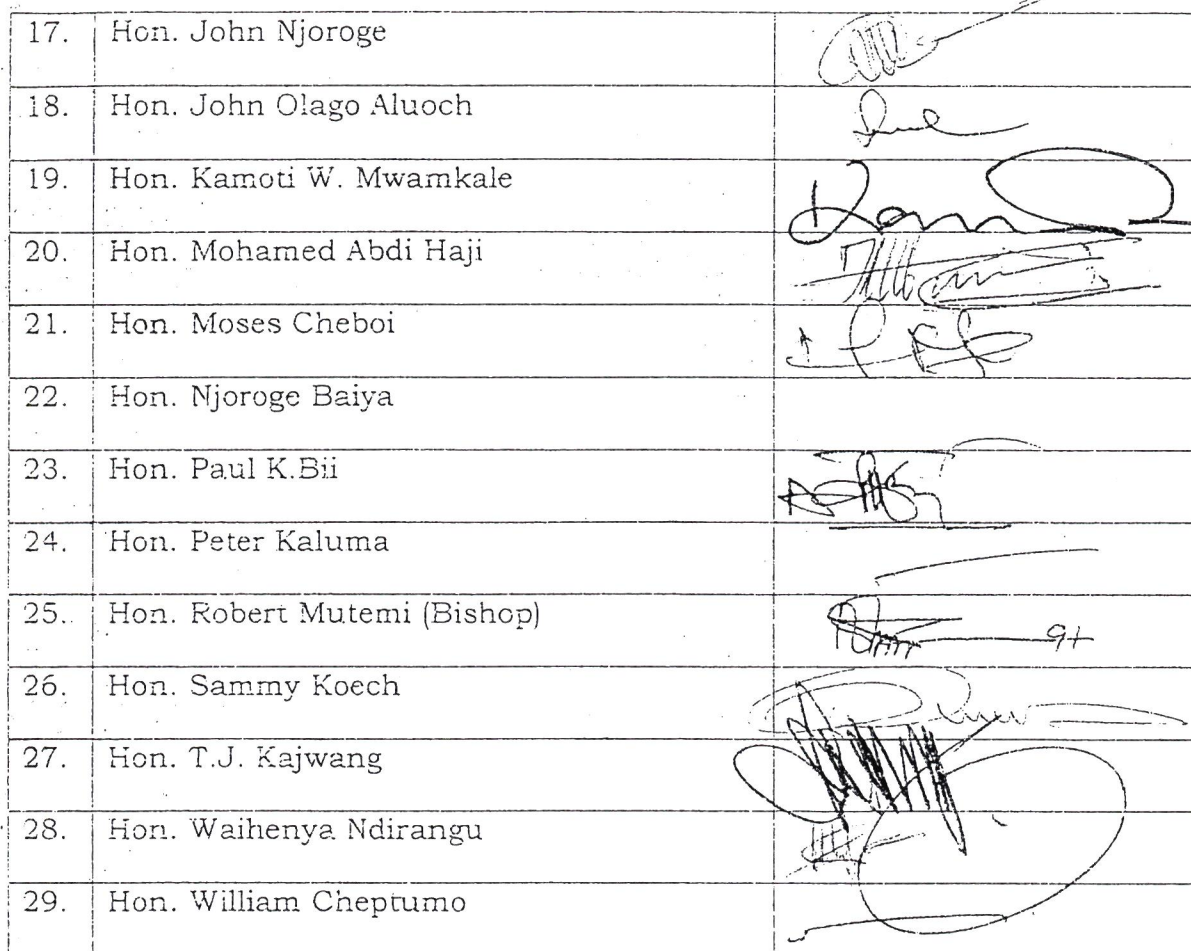 17. Hon. John Njoroge
18. Hon. John Olago Aluoch
19. Hon. Kamoti W. Mwamkale
20. Hon. Mohamed Abdi Haji
21. Hon. Moses Cheboi
22. Hon. Njoroge Baiya
23. Hon. Paul K.Bii
24. Hon. Peter Kaluma
25. Hon. Robert Mutemi (Bishop)
26. Hon. Sammy Koech
27. Hon. T.J. Kajwang
28. Hon. Waihenya Ndirangu
29. Hon. William Cheptumo